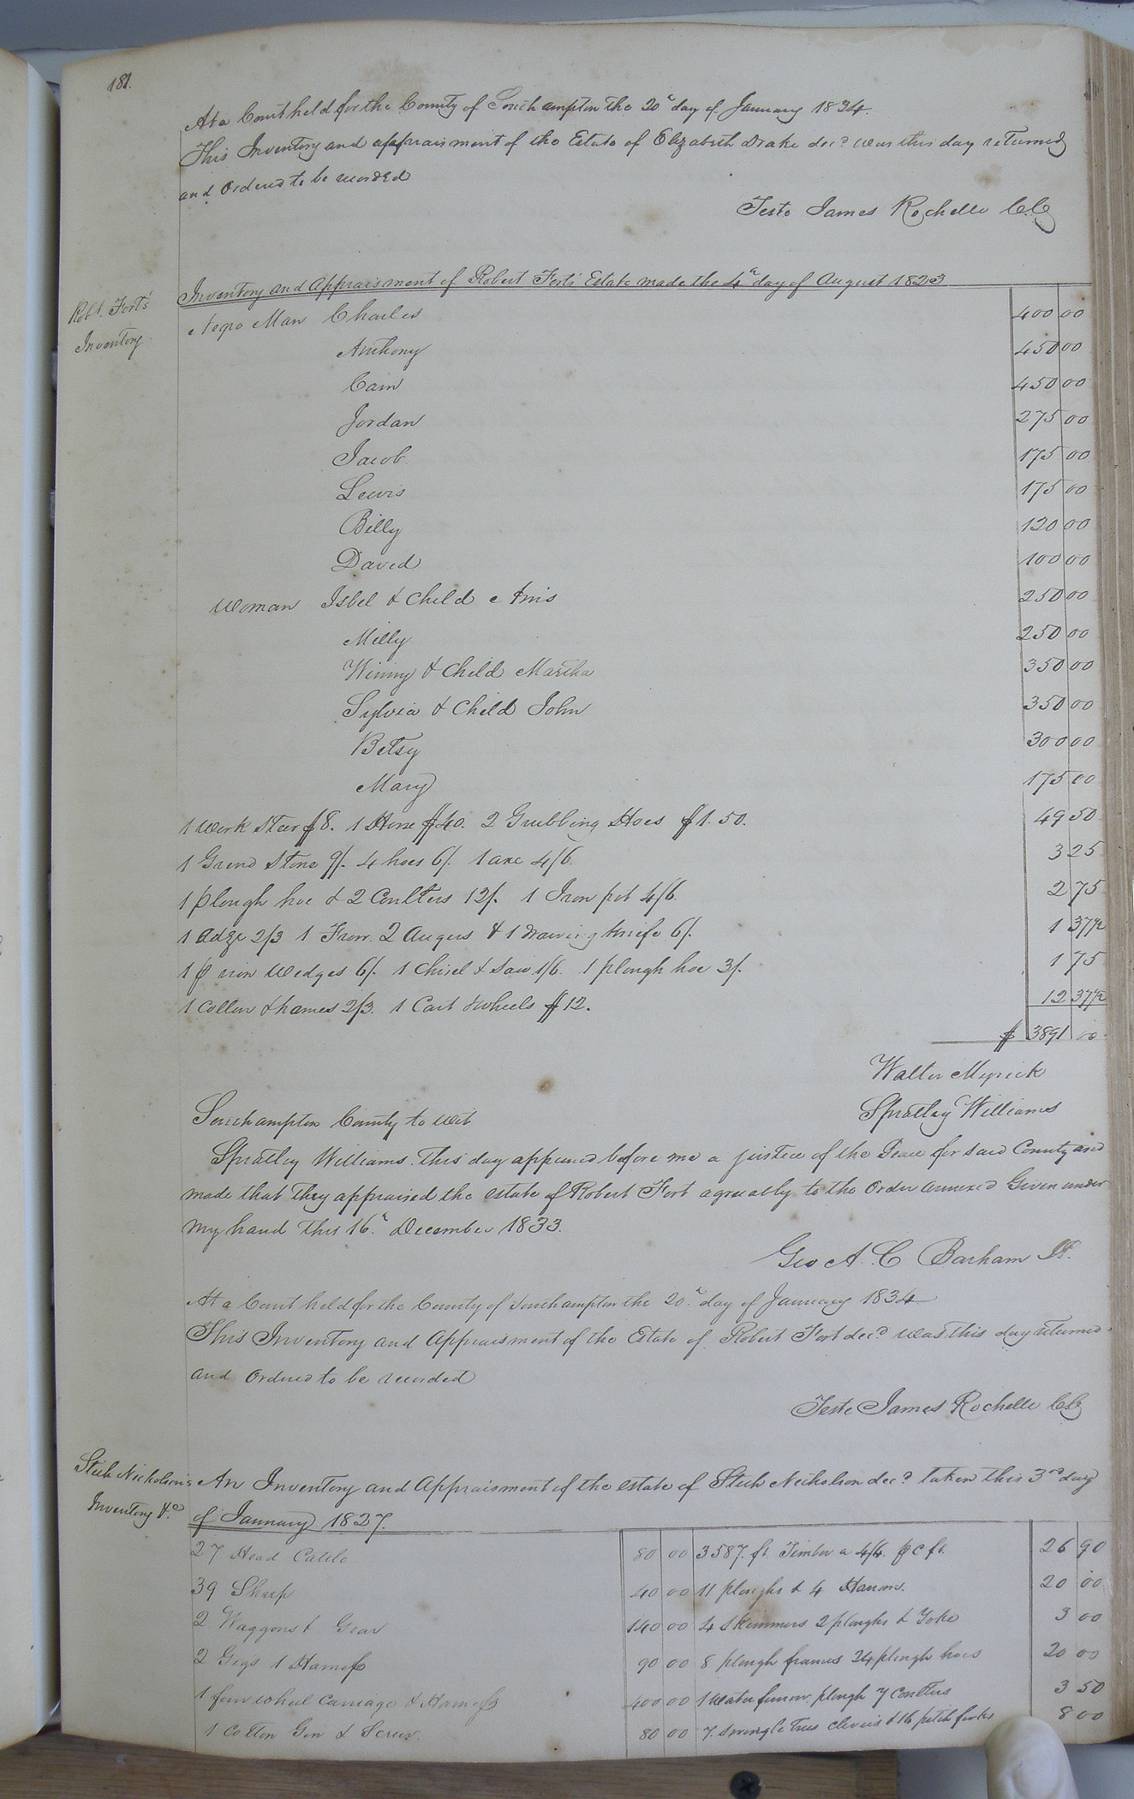 181.
At a Court held for the County of Southampton the 20th day of January 1834.
This Inventory and appraisment of the Estate of Elizabeth Drake decd was this day returned
and Ordered to be recorded
Teste James Rochelle C.C.
Inventory and Appraisment of Robert Fort's Estate made the 4th day of August 1823
Robt. Fort's
Inventory
Negro Man Charles 400 00
Anthony 450 00
Cain 450 00
Jordan 275 00
Jacob 175 00
Lewis 175 00
Billy 120 00
David 100 00
Woman Isbel & Child Anis 250 00
Milly 250 00
Winny & Child Martha 350 00
Sylvia & Child John 350 00
Betsy 300 00
Mary 175 00
1 Work Steer $8. 1 Horse $40. 2 Grubbing Hoes $1.50. 49 50
1 Grind Stone 9/. 4 hoes 6/. 1 axe 4/6. 3 25
1 plough hoe & 2 Coulters 12/. 1 Iron pot 4/6. 2 75
1 Adze 2/3 1 Frow. 2 Augers & 1 Drawing knife 6/. 1 37½
1 pr iron Wedges 6/. 1 Chisel & Saw 1/6. 1 plough hoe 3/. 1 75
1 Collar & hames 2/3. 1 Cart & wheels $12. 12 37½
$ 3891 00
Walter Myrick
Spratley Williams
Southampton County to wit
Spratley Williams. this day appeared before me a justice of the Peace for said County and
made that they appraised the estate of Robert Fort agreeably to the Order annexed Given under
my hand this 16th December 1833.
Geo A. C. Barham JP.
At a Court held for the County of Southampton the 20th day of January 1834
This Inventory and Appraisment of the Estate of Robert Fort decd was this day returned
and Ordered to be recorded
Teste James Rochelle C.C.
Steth Nicholson's
Inventory &c
An Inventory and Appraisment of the estate of Steth Nicholson decd taken this 3rd day
of January 1827.
27 Head Cattle 80 00 3587 ft Timber a 4/6. p C ft. 26 90
39 Sheep 40 00 11 ploughs & 4 Harrows. 20 00
2 Waggons & Gear 140 00 4 Skimmers 2 ploughs & Yoke 3 00
2 Gigs 1 Harness 90 00 8 plough frames 24 plough hoes 20 00
1 four wheel Carriage & Harness 400 00 1 Water furrow plough 7 Coulters 3 50
1 Cotton Gin & Screw. 80 00 7. Swingle Trees clevis & 16 pitch forks 8 00